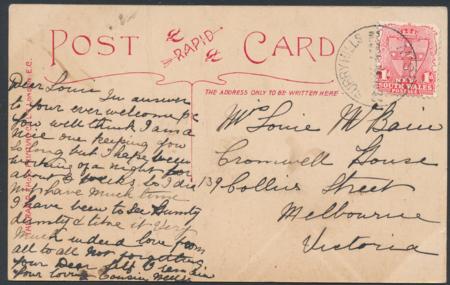 POST CARD
RAPID
THE ADDRESS ONLY TO BE WRITTEN HERE
SURRY HILLS
NEW
SOUTH WALES
POSTAGE
Dear Louie In answer
to your ever welcome pc
you will think I am a
nice one keeping you
so long but I have been
working of a night for
about 6 weeks so I
not have much time
I have been to see Humty
dumty & like it very
much indeed love from
all to all not forgetting
your Dear self
your loving Cousin Nellie
Louie McBain
Cromwell House
139 Collins Street
Melbourne
Victoria